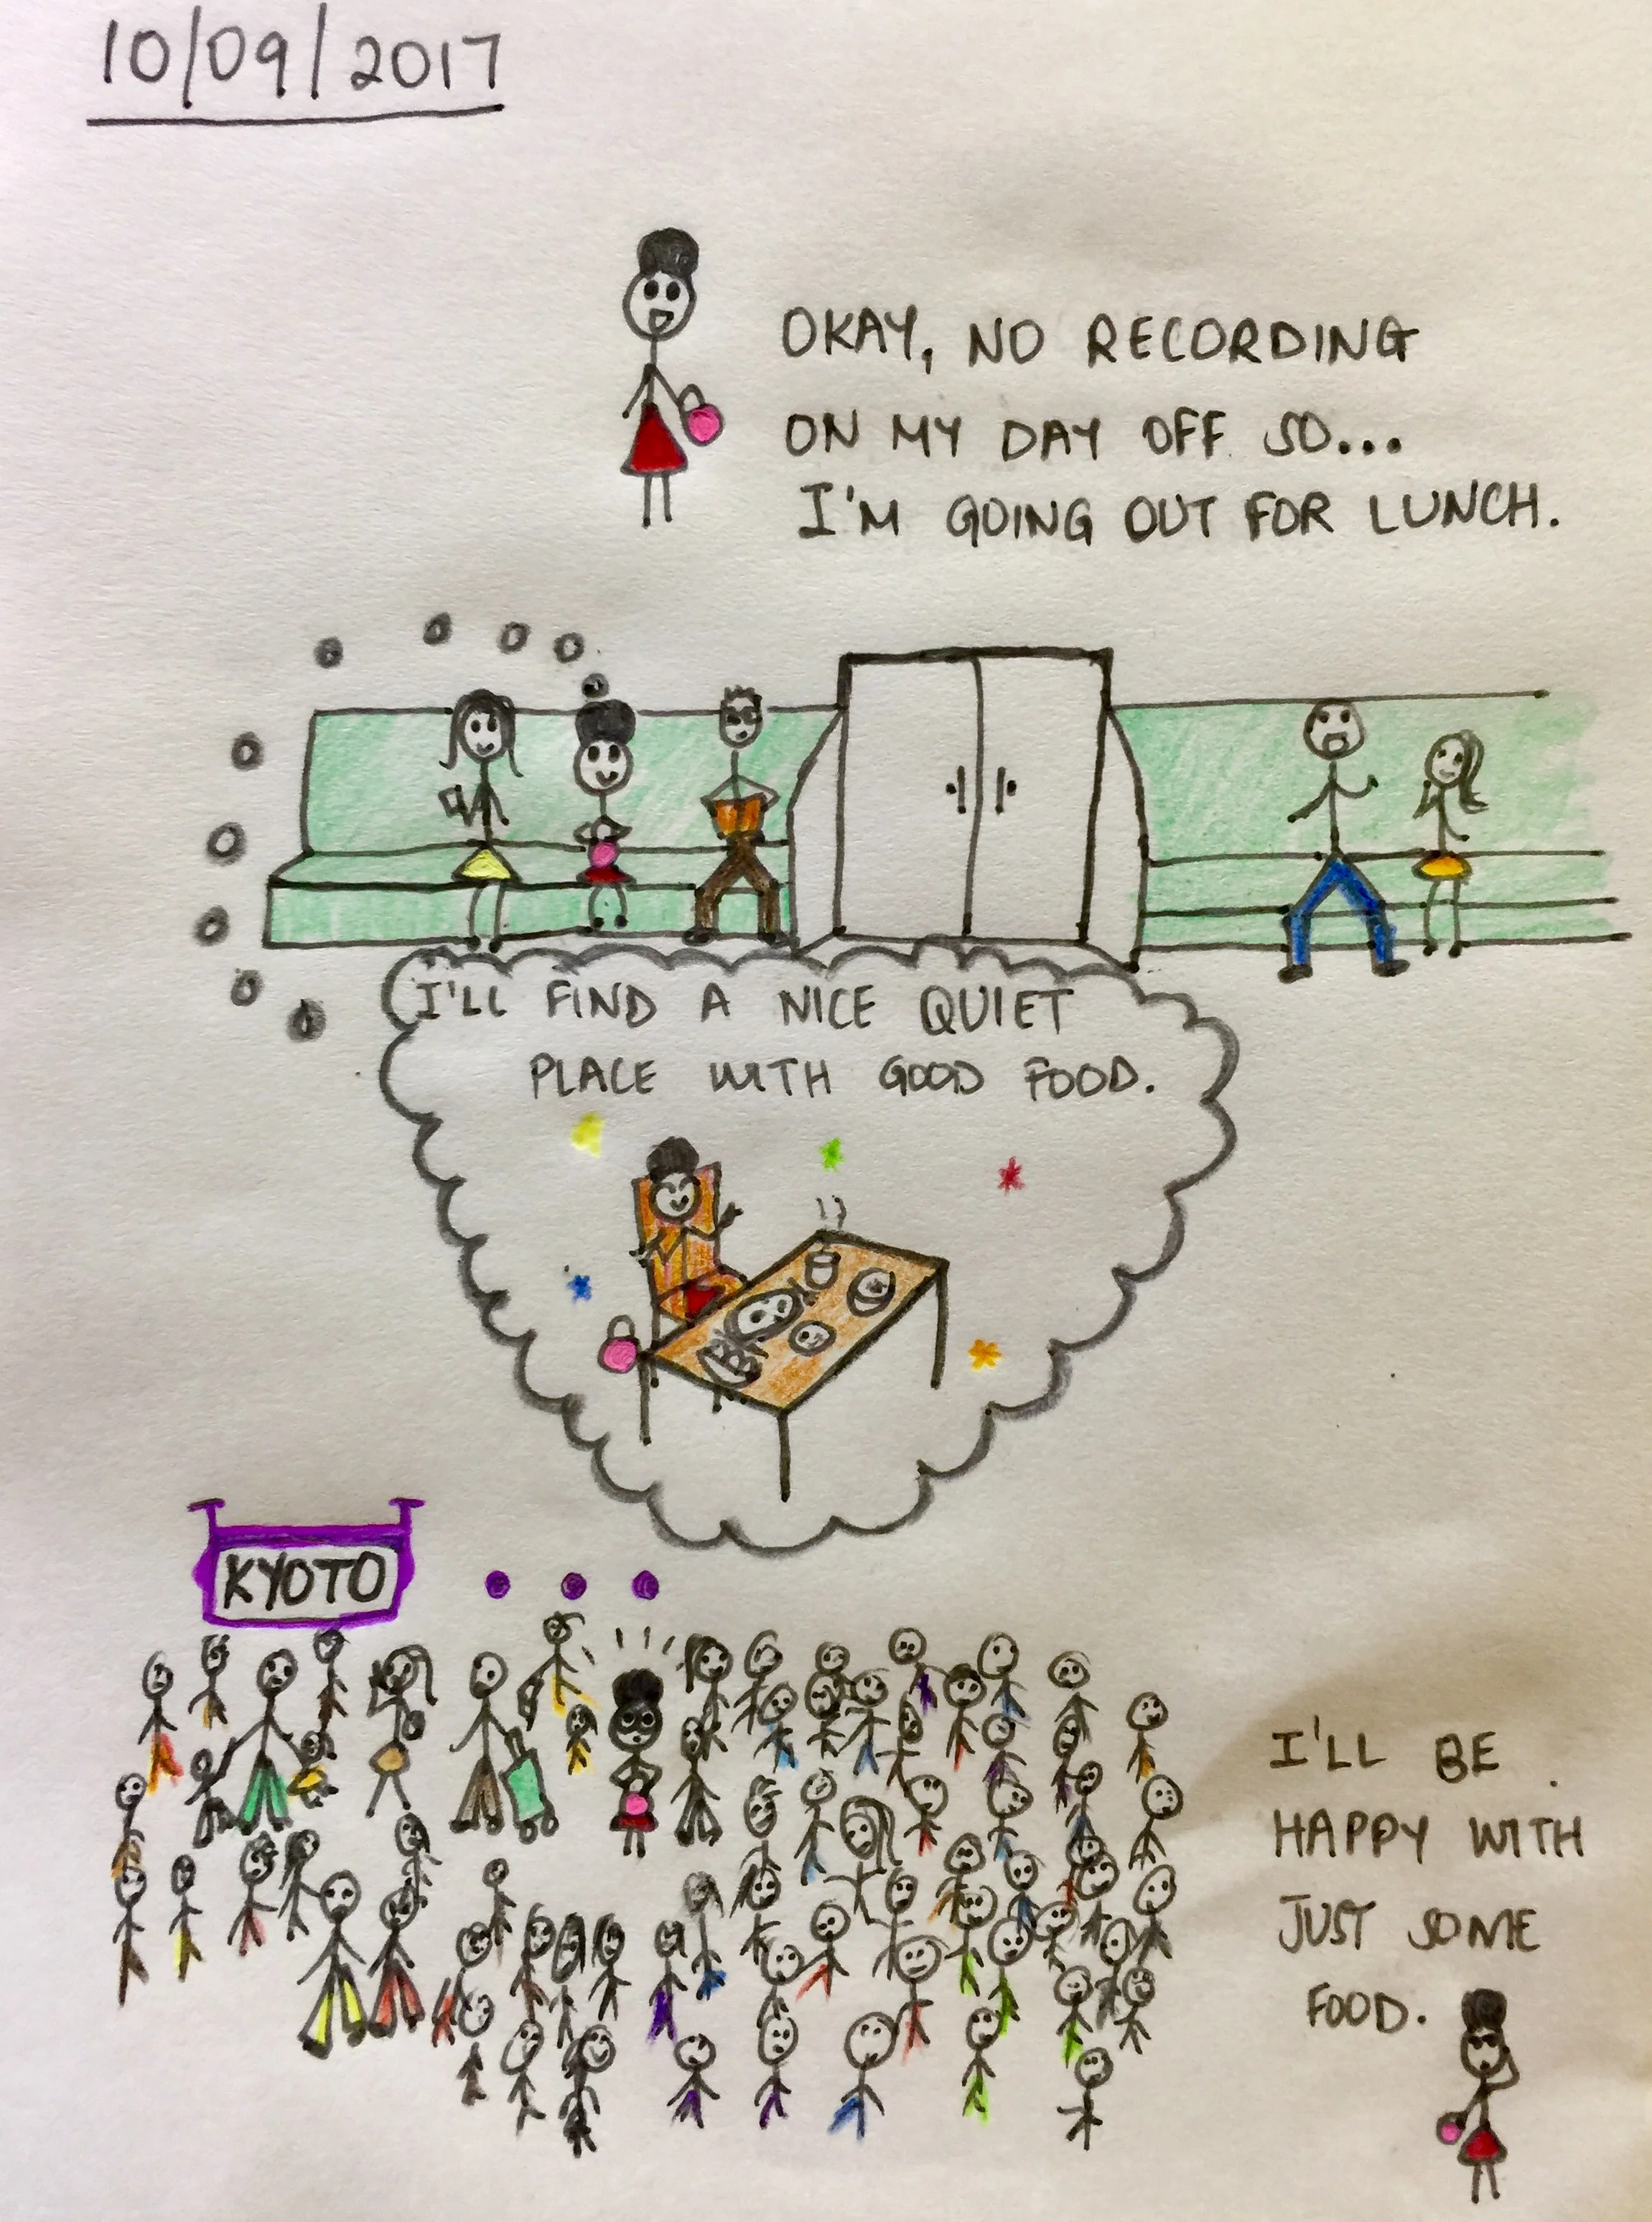 10/09/2017
OKAY, NO RECORDING
ON MY DAY OFF SO...
I'M GOING OUT FOR LUNCH.
I'LL FIND A NICE QUIET
PLACE WITH GOOD FOOD.
KYOTO
I'LL BE
HAPPY WITH
JUST SOME
FOOD.